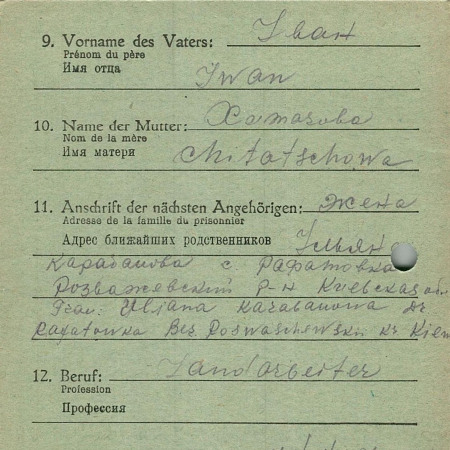 9. Vorname des Vaters: Иван
Prénom du père
Имя отца Iwan
10. Name der Mutter: Хитачова
Nom de la mère
Имя матери Chitatschowa
11. Anschrift der nächsten Angehörigen: жена
Adresse de la famille du prisonnier
Адрес ближайших родственников Ульян
Карабанова с.
Розважевский р-н Киевская об
Frau: Uljana Karabanowa Dr
Bez Roswaschewski Kr Kiew
12. Beruf: Landarbeiter
Profession
Профессия